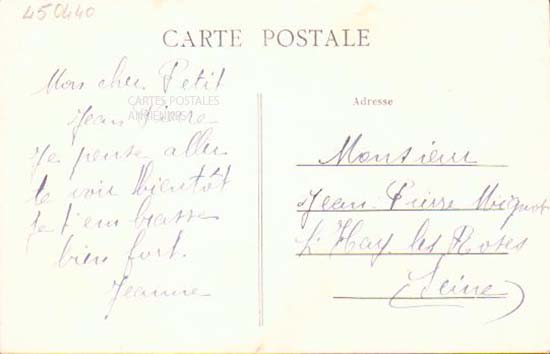 450440
CARTE POSTALE
Mon cher Petit
Jean Pierre
CARTES POSTALES
ANCIENNES
Je pense aller
te voir bientôt
Je t'embrasse
bien fort.
Jeanne
Adresse
Monsieur
Jean-Pierre Mignot
L'Hay les Roses
(Seine)